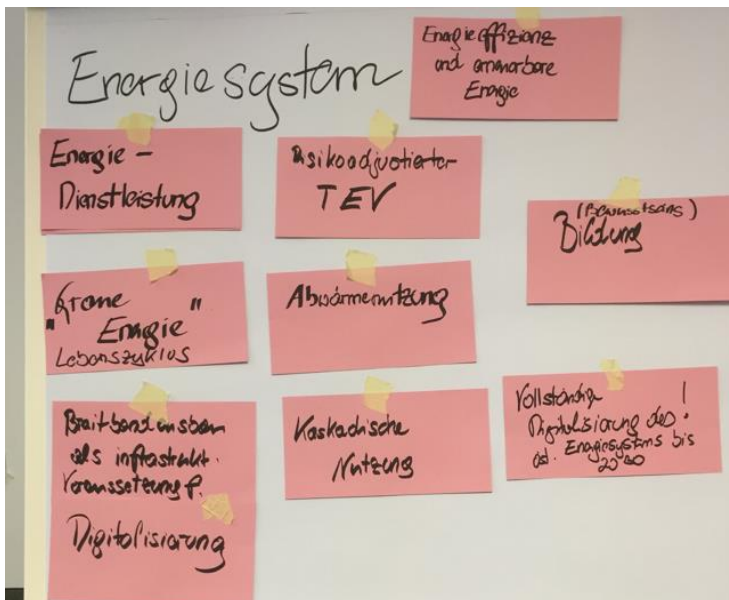 Energiesystem
Energieeffizienz
und erneuerbare
Energie
Energie –
Dienstleistung
Risikoadjustierter
TEV
(Bewusstseins)
Bildung
"Grüne
Energie"
Lebenszyklus
Abwärmenutzung
Breitbandausbau
als infrastrukt.
Voraussetzung f.
Digitalisierung
Kaskadische
Nutzung
Vollständige
Digitalisierung des !
öst. Energiesystems bis